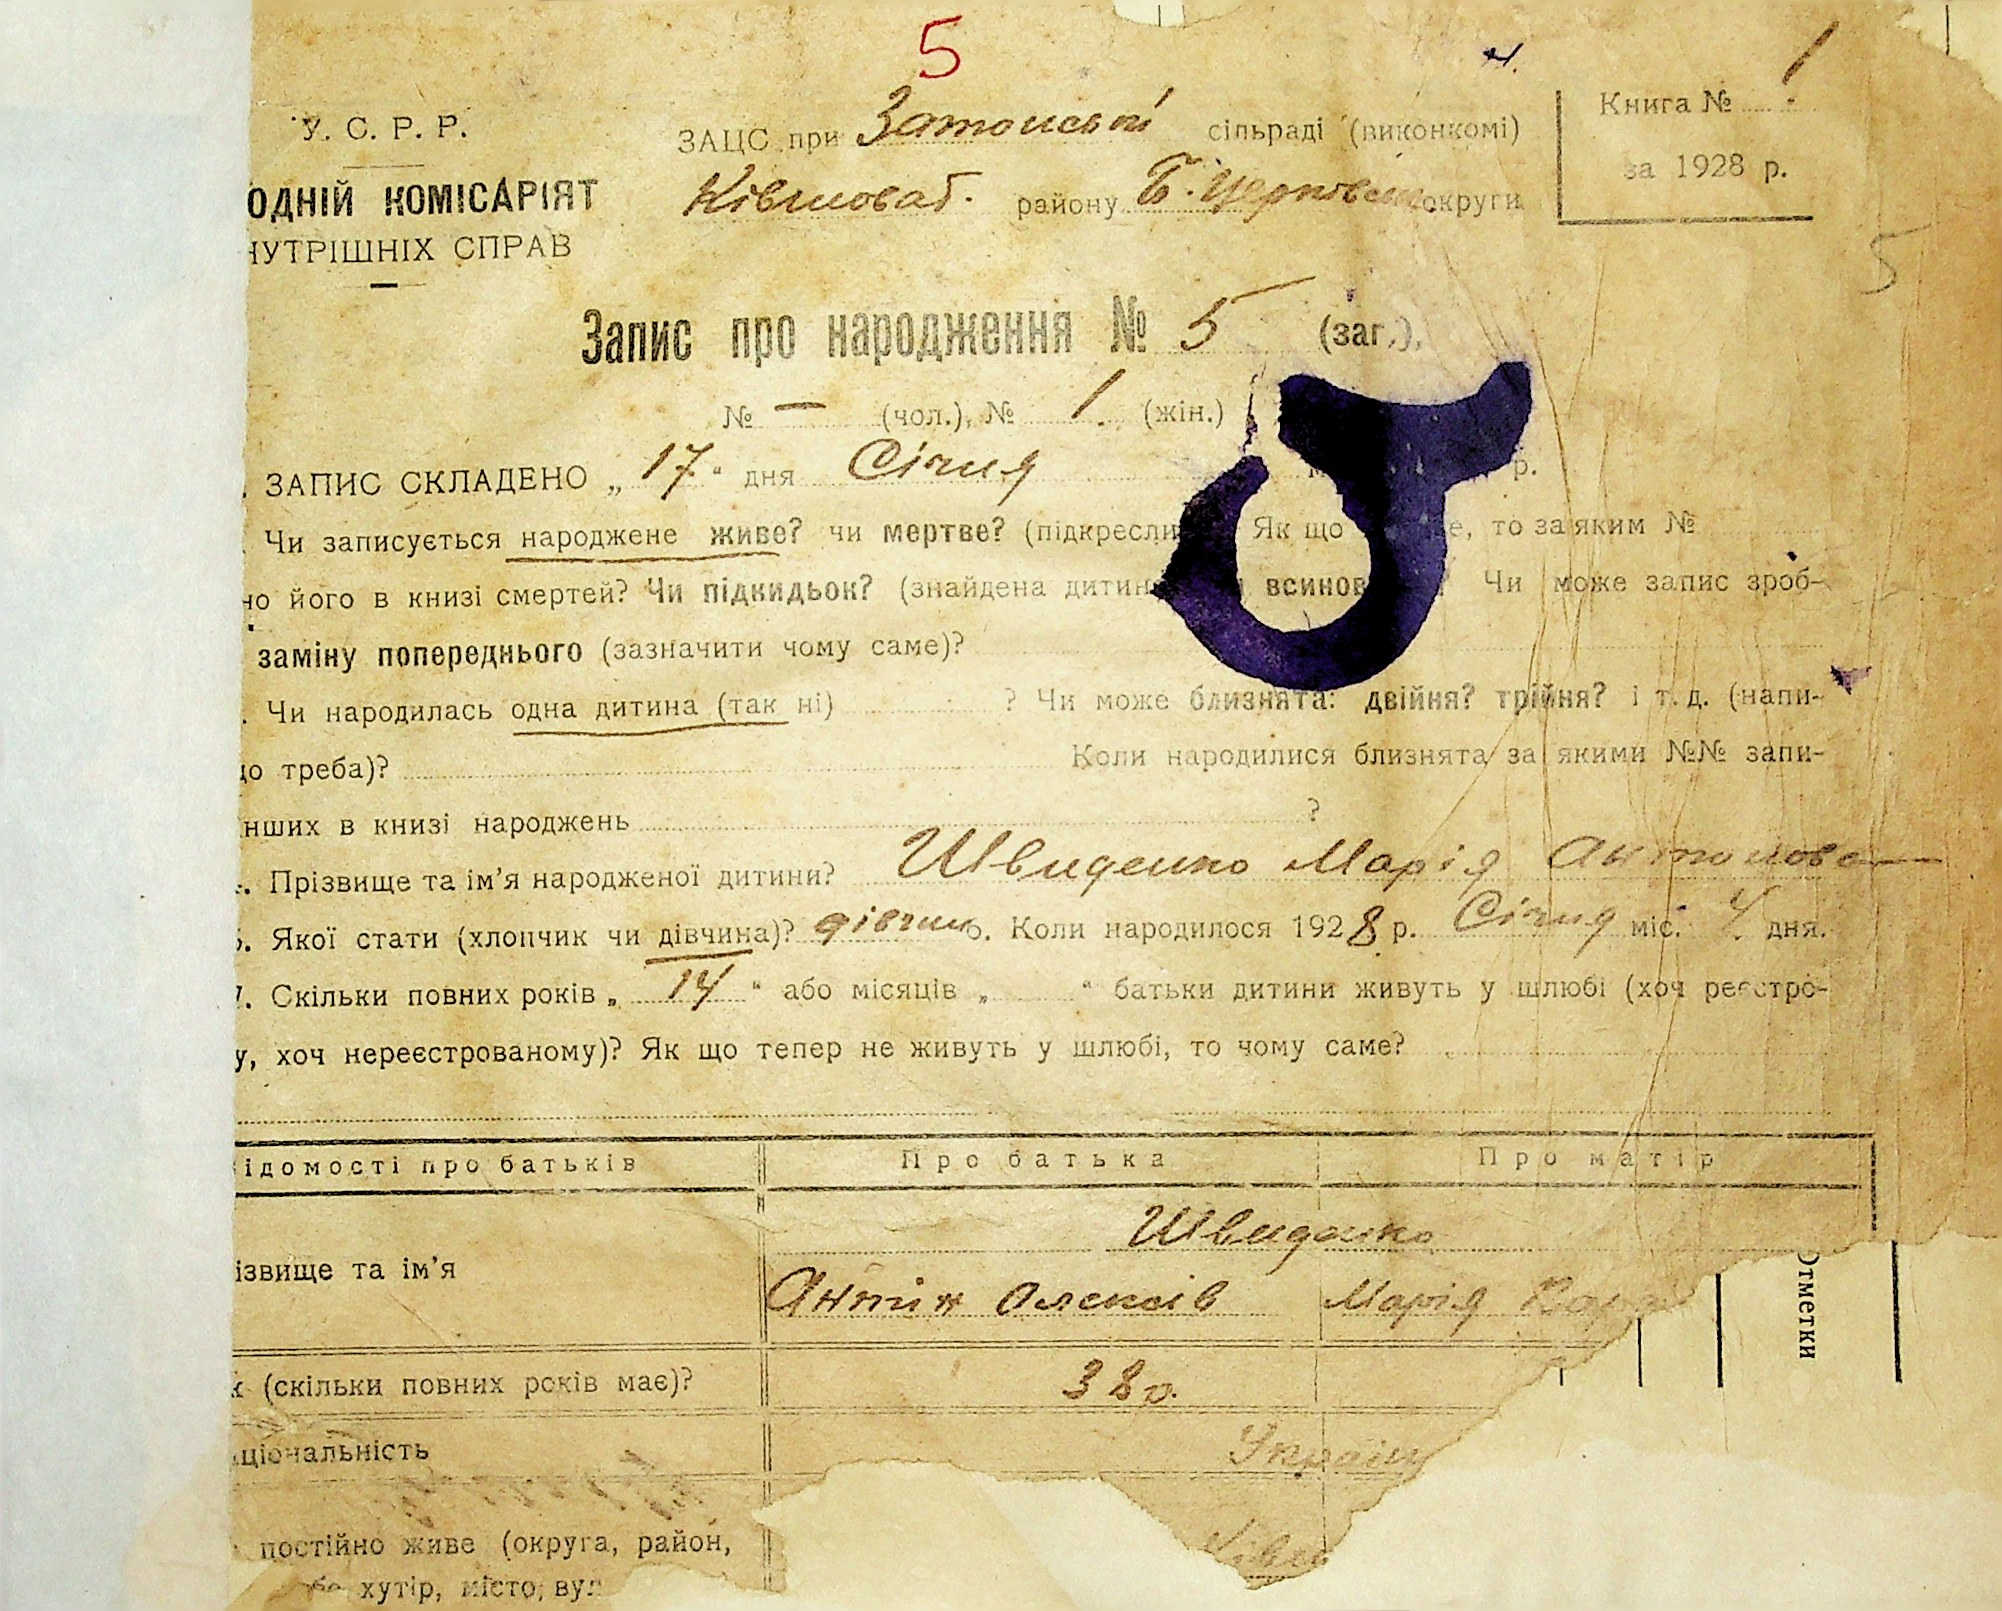 5
У. С. Р. Р.
ЗАЦС при Затонській сільраді (виконкомі)
Книга № 1
ОДНІЙ КОМІСАРІЯТ
Ківшоват. району Б. Церковської округи
за 1928 р.
НУТРІШНІХ СПРАВ
5
Запис про народження № 5 (заг.),
№ — (чол.), № 1. (жін.)
. ЗАПИС СКЛАДЕНО „ 17 “ дня Січня р.
Чи записується народжене живе? чи мертве? (підкресли Як що е, то за яким №
но його в книзі смертей? Чи підкидьок? (знайдена дитин всинов ? Чи може запис зроб-
заміну попереднього (зазначити чому саме)?
. Чи народилась одна дитина (так ні) ? Чи може близнята: двійня? трійня? і т. д. (напи-
що треба)? Коли народилися близнята за якими №№ запи-
інших в книзі народжень ?
. Прізвище та ім’я народженої дитини? Швиденко Марія Антонова
5. Якої стати (хлопчик чи дівчина)? дівчина. Коли народилося 1928 р. Січня міс. 4 дня.
7. Скільки повних років „ 14 “ або місяців „ “ батьки дитини живуть у шлюбі (хоч реєстро-
у, хоч нереєстрованому)? Як що тепер не живуть у шлюбі, то чому саме?
ідомості про батьків Про батька Про матір
Швиденко
ізвище та ім’я
Антін Олексів Марія Вар
Отметки
к (скільки повних років має)? 38 р.
аціональність Україн
постійно живе (округа, район,
Ківш
або хутір, місто, вул